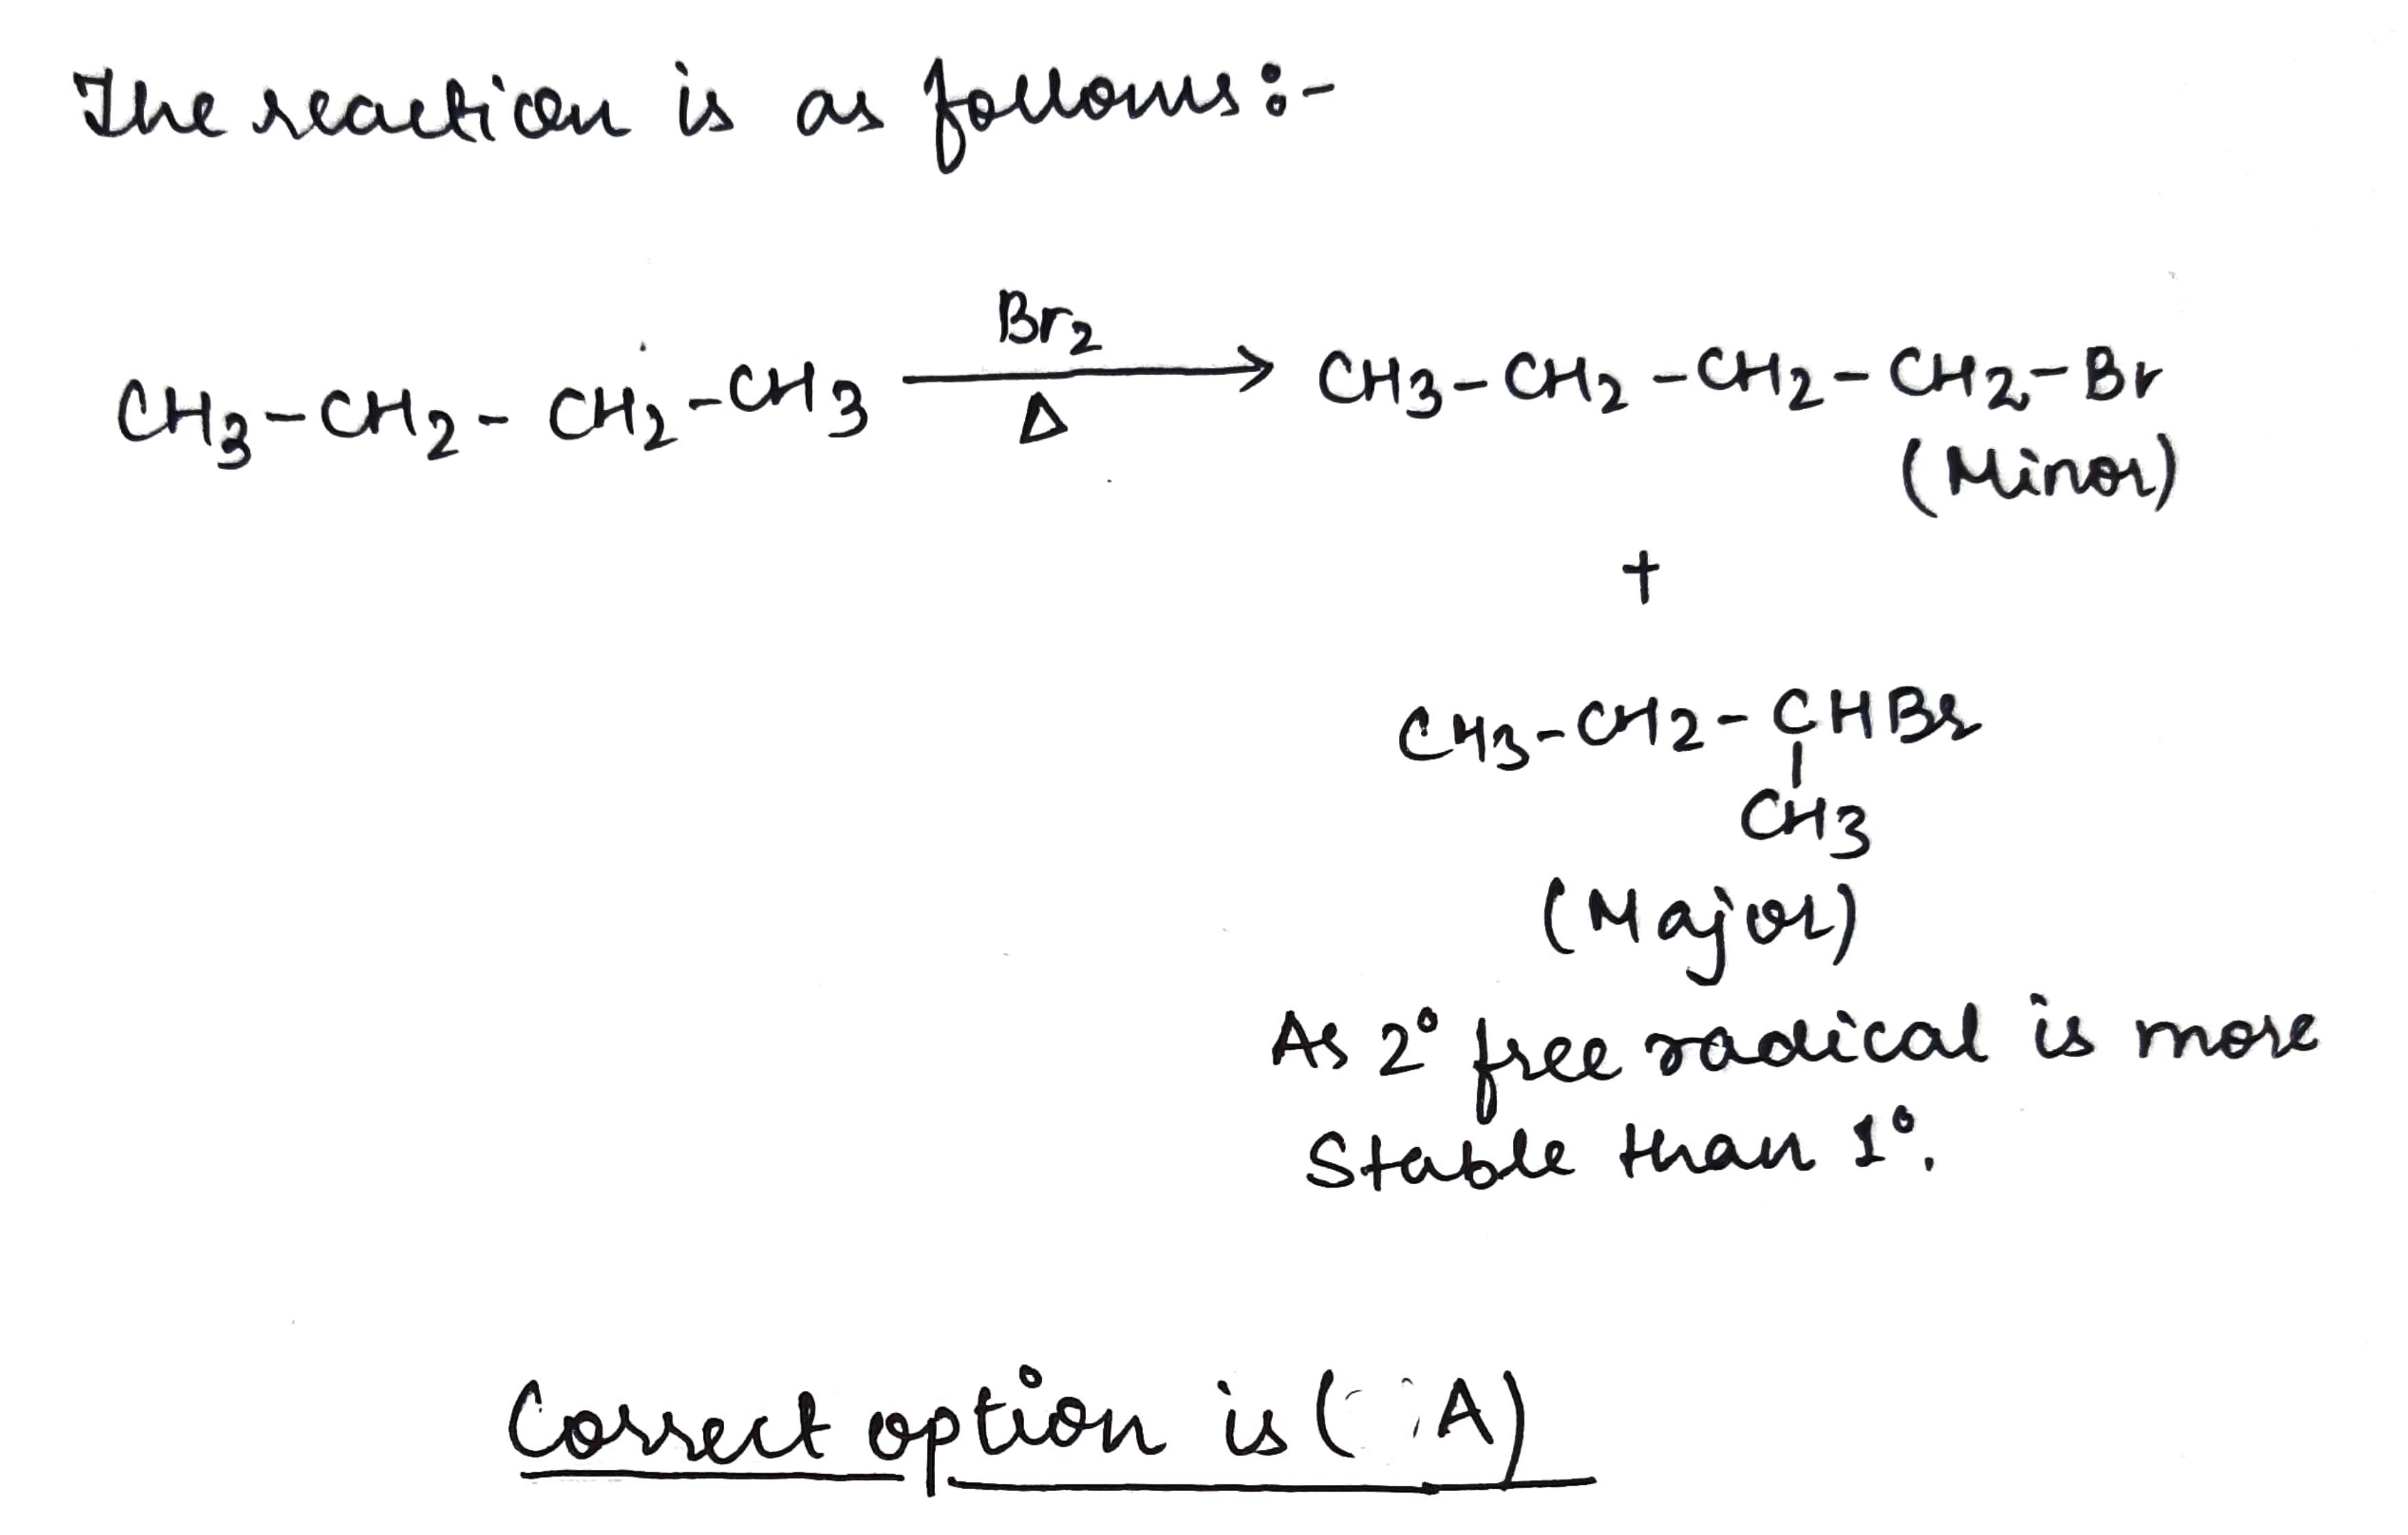 The reaction is as follows:-
Br2
CH3-CH2-CH2-CH3 → CH3-CH2-CH2-CH2-Br
Δ
(Minor)
+
CH3-CH2-CHBr
CH3
(Major)
As 2° free radical is more
Stable than 1°.
Correct option is (A)